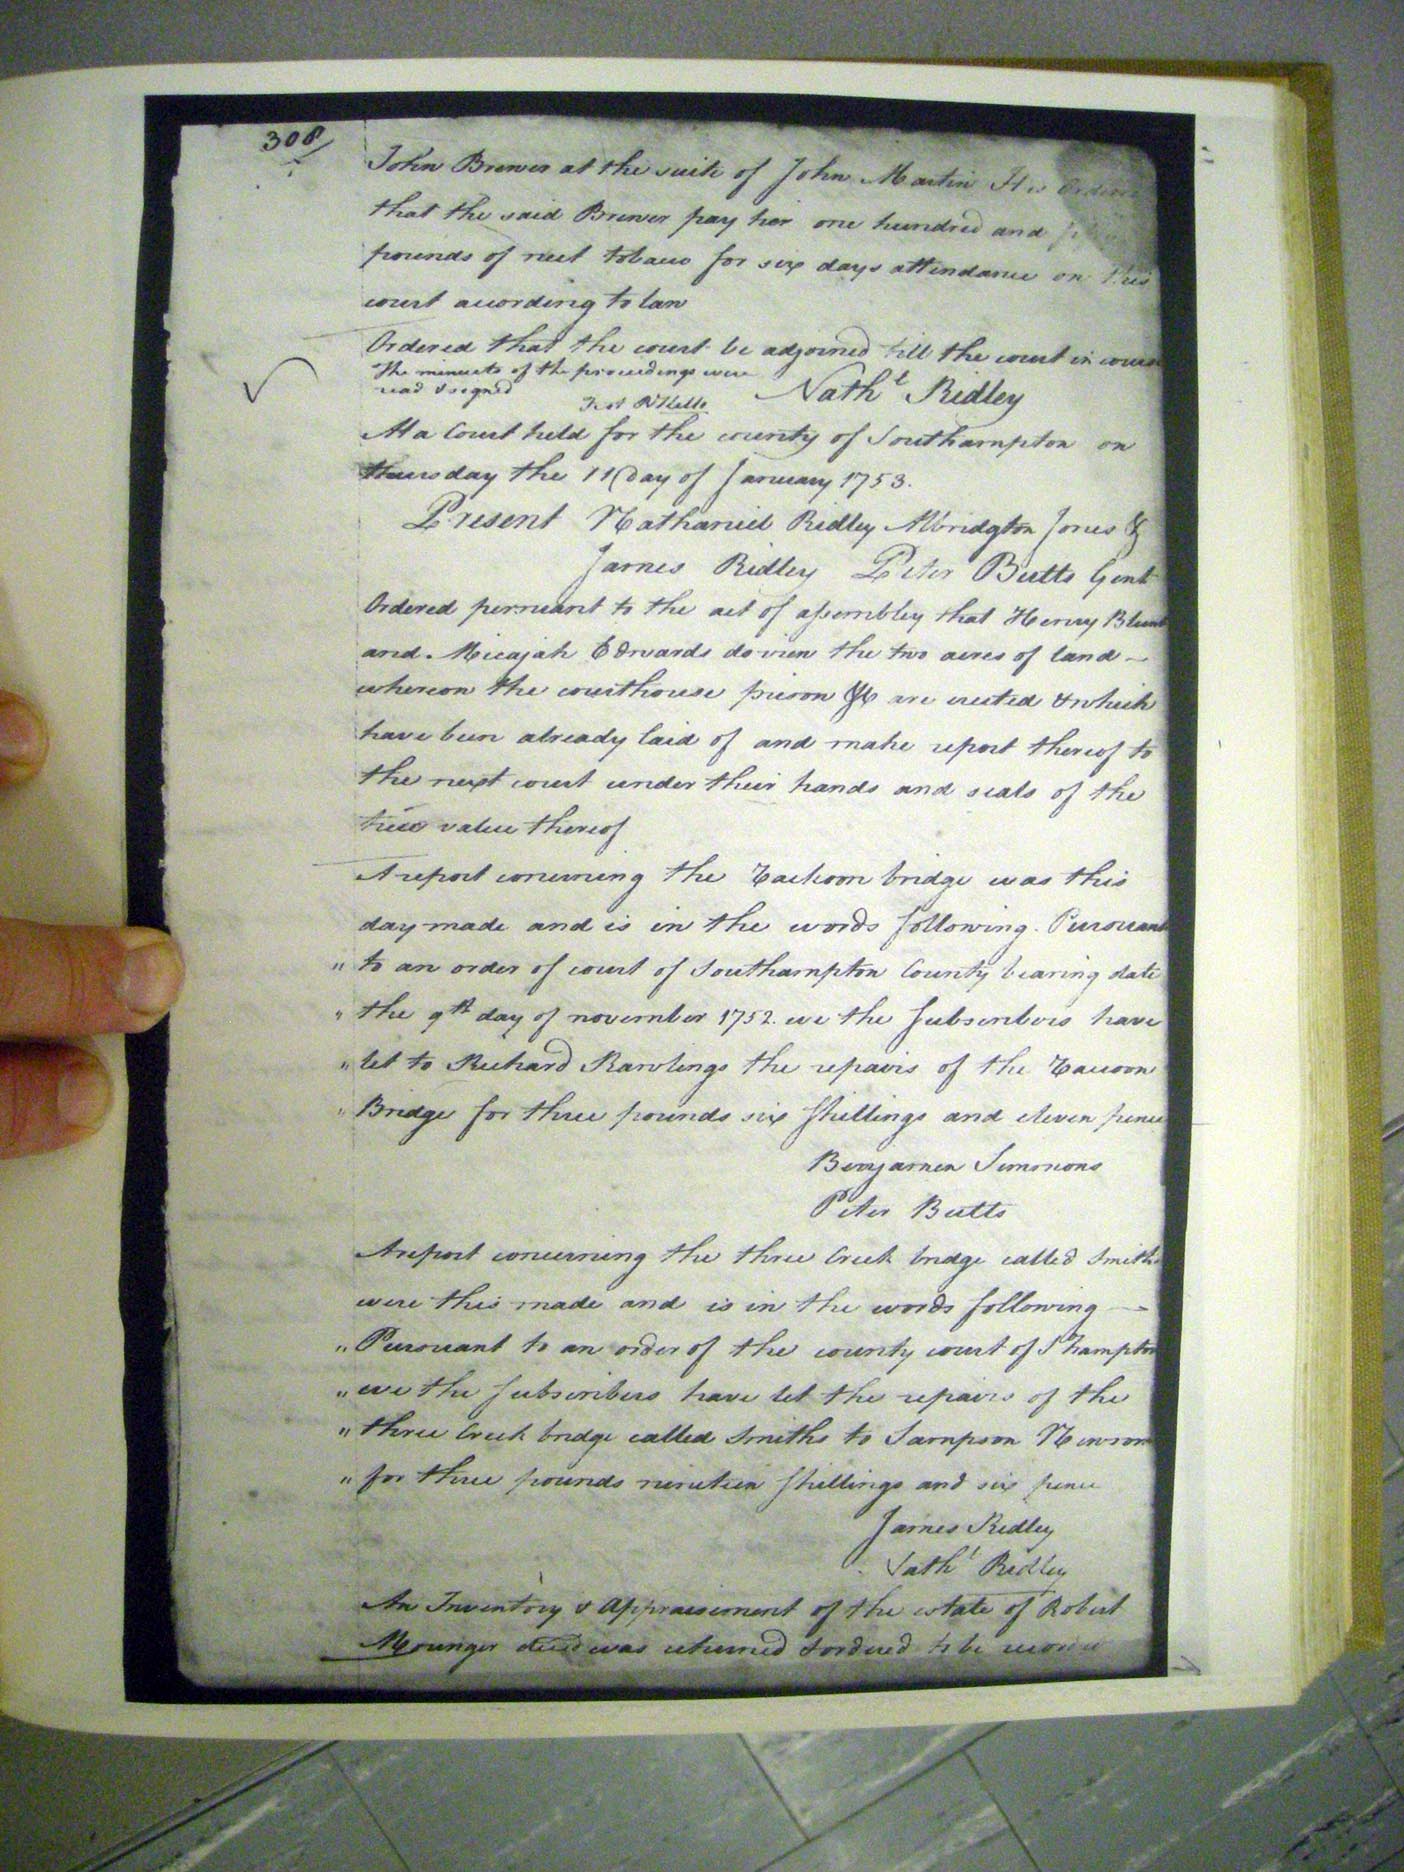 308
John Brewer at the suite of John Martin It is Ordered
that the said Brewer pay her one hundred and
pounds of neet tobacco for six days attendance on this
court according to law
Ordered that the court be adjorned till the court in course
The minuets of the proceedings were
read & signed
Nath.l Ridley
Test R Kello
At a Court held for the county of Southampton on
thursday the 11 Day of January 1753.
Present Nathaniel Ridley Albridgton Jones &
James Ridley Peter Butts Gent
Ordered persuant to the act of assembley that Henry Blunt
and Micajah Edwards do view the two acres of land
whereon the courthouse prison &c are erected & which
have been already laid of and make report thereof to
the next court under their hands and seals of the
true value thereof
A report concerning the Tachoon bridge was this
day made and is in the words following. Pursuant
" to an order of court of Southampton County bearing date
" the 9th day of november 1752. we the Subscribers have
" let to Richard Rawlings the repairs of the Taccoon
" Bridge for three pounds six shillings and eleven pence
Benjamen Simmons
Peter Butts
A report concerning the three Creek bridge called Smiths
were this made and is in the words following
" Pursuant to an order of the county court of S'hampton
" we the Subscribers have let the repairs of the
" three Creek bridge called Smiths to Sampson Newsom
" for three pounds nineteen shillings and six pence
James Ridley
Nath.l Ridley
An Inventory & Appraisement of the estate of Robert
Mounger decd was returned & ordered to be